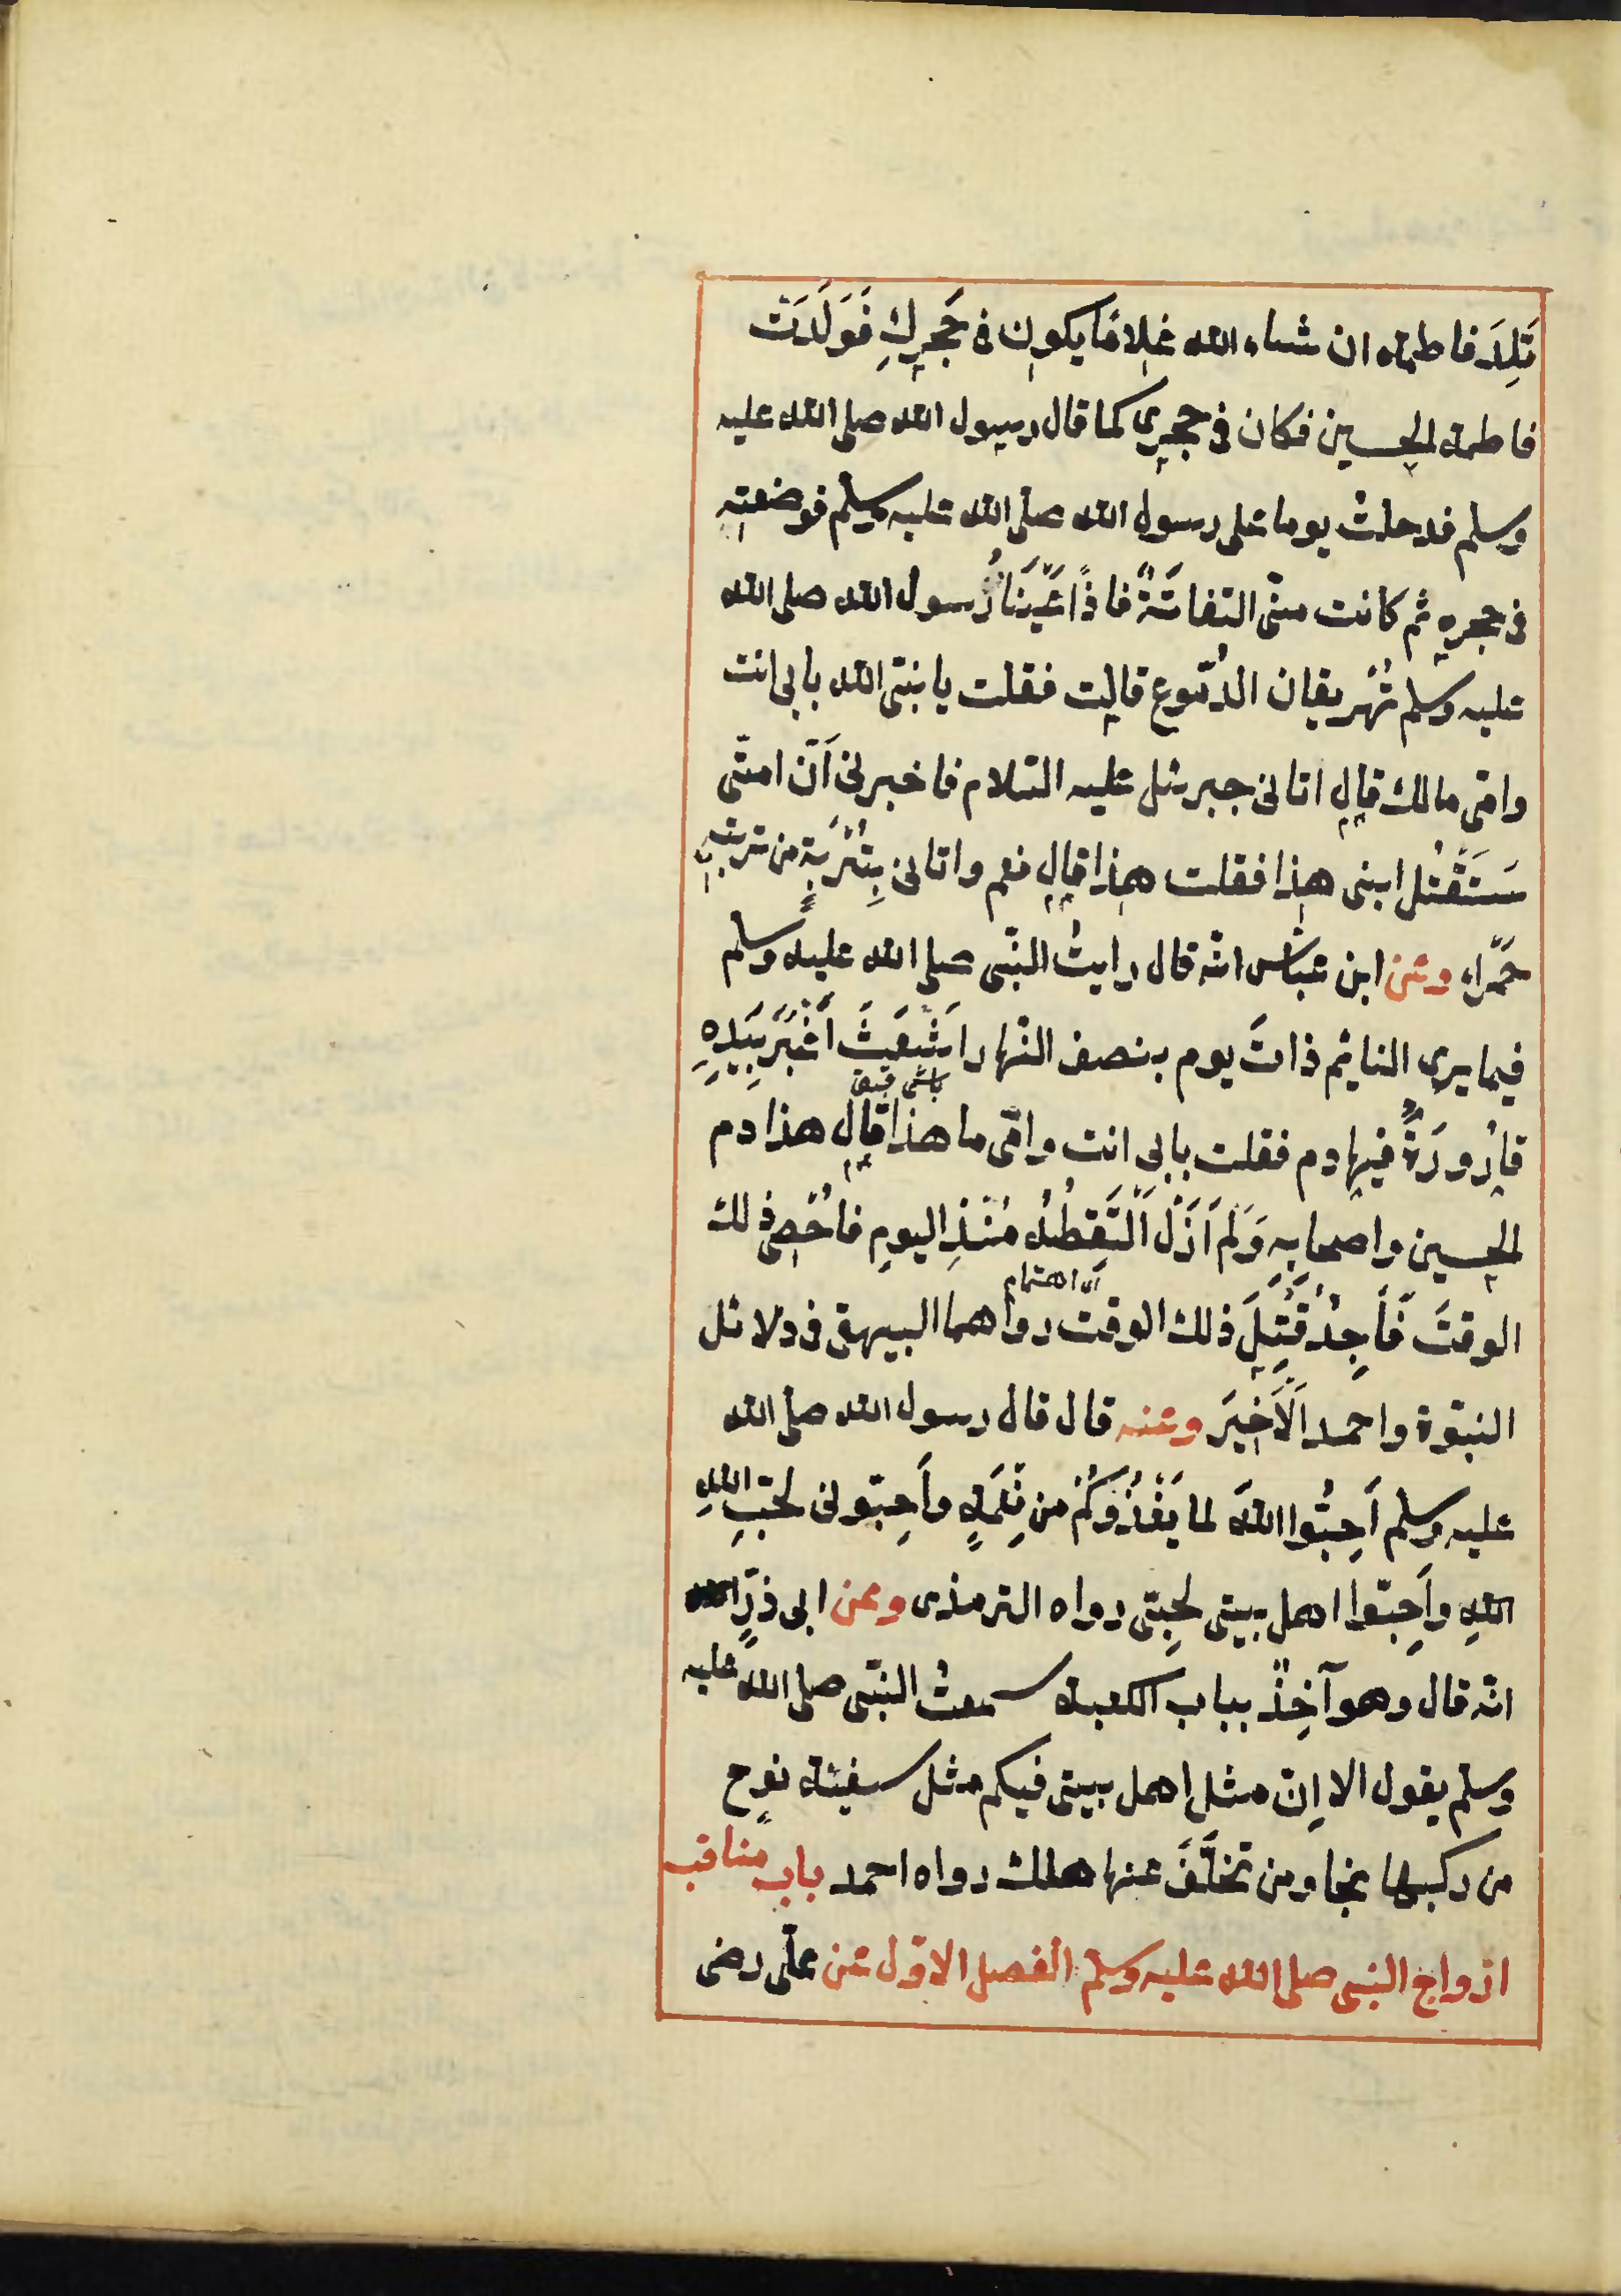 تَلِدَ فاطمة ان شاء الله غلاما يكون في حَجرِكِ فَوَلَدَتْ
فاطمة الحسين فكان في حجري كما قال رسول الله صلى الله عليه
وسلم فدخلتُ يوما على رسول الله صلى الله عليه وسلم فوضعته
في حجره ثم كانت منّي التفاتَةٌ فاذًا عَيْنَا رسول الله صلى الله
عليه وسلم تُهْريقان الدُّموع قالت فقلت يا نبيّ الله بابي انت
وامّي مالك قال اتاني جبرئل عليه السّلام فاخبرني اَنّ امتّي
سَتَقْتُل ابني هذا فقلت هذا قال نعم واتاني بِتُرْبَةٍ من تربته
حَمْراء وعن ابن عبّاس انّه قال رايتُ النّبي صلى الله عليه وسلم
فيما يرى النايم ذاتَ يوم بنصف النّهار اَشْعَثَ اَغْبَرَ بِيَدِهِ
قارُورَةٌ فيها دم فقلت بابي انت وامّي ما هذا قال هذا دم
الحسين واصحابِهِ وَلَم اَزَلْ اَلْتَقِطُهُ مُنْذُ اليومِ فاُحْصِي ذلك
الوقتَ فَاَجِدُ قُتِلَ ذلك الوقت رواهما البيهقي في دلائل
النبوّة واحمد اَلاَخيَر وعنه قال قال رسول الله صلى الله
عليه وسلم اَحِبُّوا اللّهَ لما يَغْذُوَكُمْ من نِعَمِهِ واَحِبّوني لحبِّ اللهِ
اللهِ واَحِبّوا اهل بيتي لحِبّي رواه الترمذى وعن ابي ذرٍّ
انّه قال وهو آخِذٌ بباب الكعبة سمعتُ النّبّي صلى الله عليه
وسلم يقول الا اِنّ مثل اهل بيتي فيكم مثل سفينة نوح
من ركبها نجا ومن تخلَّفَ عنها هلك رواه احمد باب مناقب
ازواج النبي صلى الله عليه وسلم الفصل الاوّل عن علّي رضى